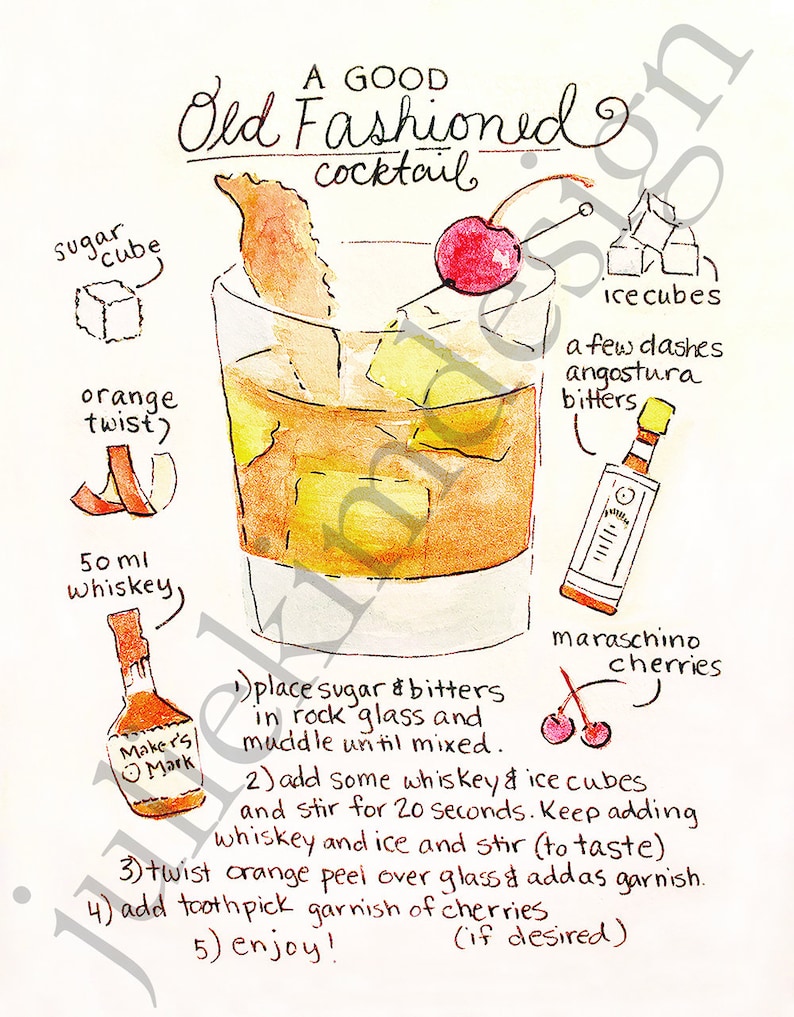 A GOOD
Old Fashioned
cocktail
sugar
cube
ice cubes
a few dashes
angostura
bitters
orange
twist
50 ml
whiskey
Maker's
Mark
maraschino
cherries
1) place sugar & bitters
in rock glass and
muddle until mixed.
2) add some whiskey & ice cubes
and stir for 20 seconds. Keep adding
whiskey and ice and stir (to taste)
3) twist orange peel over glass & add as garnish.
4) add toothpick garnish of cherries
(if desired)
5) enjoy!
juliekimdesign